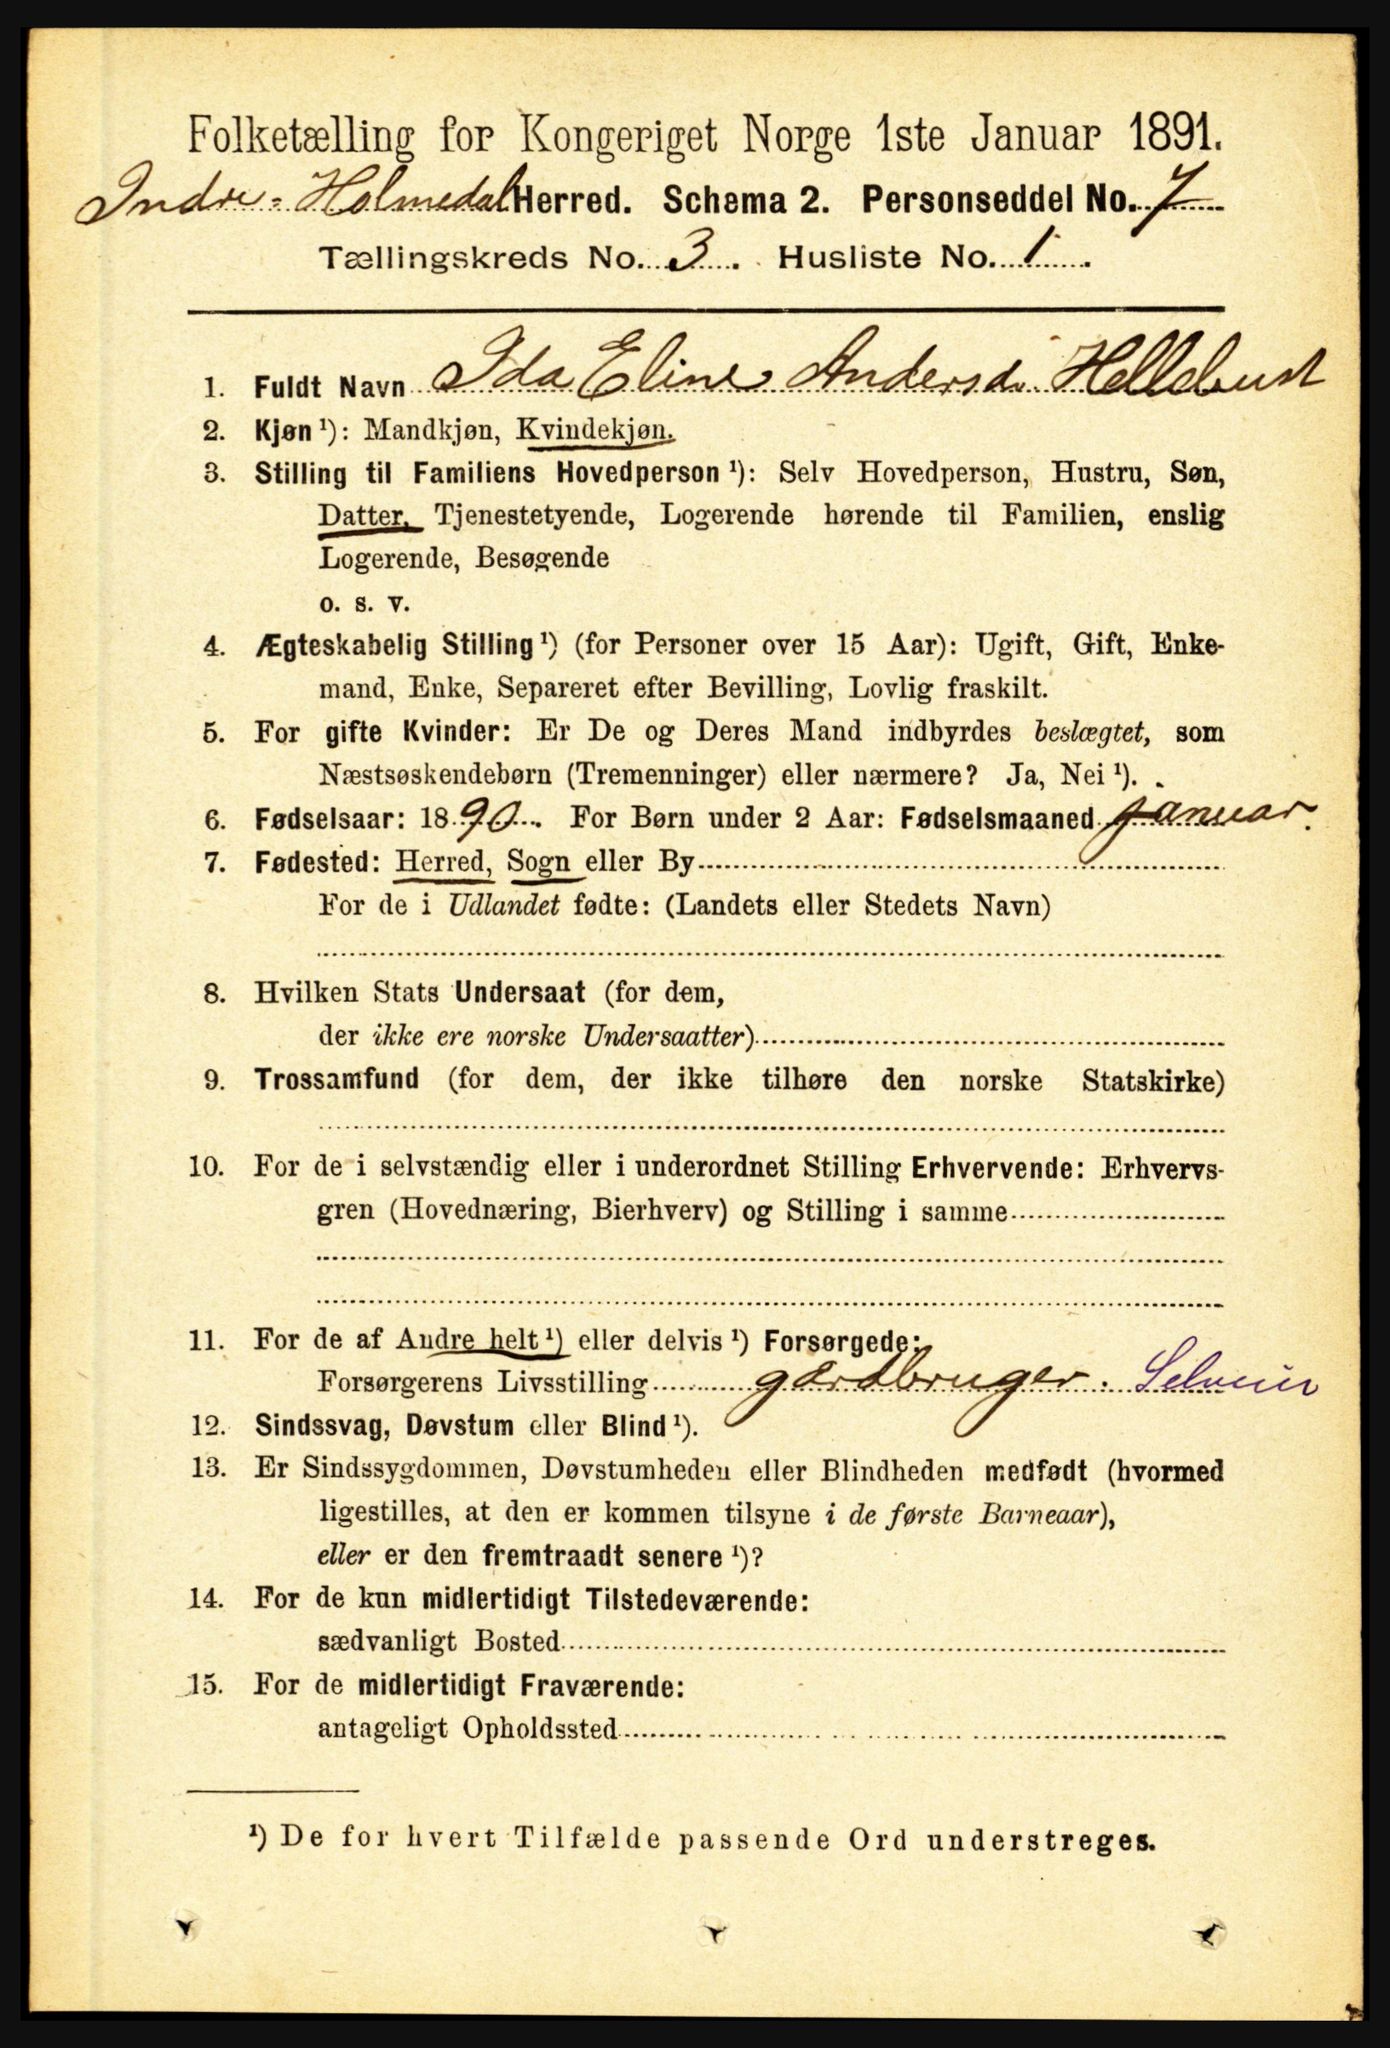 Folketælling for Kongeriget Norge 1ste Januar 1891.
Indre-Holmedal Herred. Schema 2. Personseddel No. 7
Tællingskreds No. 3. Husliste No. 1.
1. Fuldt Navn Ida Eline Andersd. Hellebust
2. Kjøn ¹): Mandkjøn, Kvindekjøn.
3. Stilling til Familiens Hovedperson ¹): Selv Hovedperson, Hustru, Søn,
Datter, Tjenestetyende, Logerende hørende til Familien, enslig
Logerende, Besøgende
o. s. v.
4. Ægteskabelig Stilling ¹) (for Personer over 15 Aar): Ugift, Gift, Enke-
mand, Enke, Separeret efter Bevilling, Lovlig fraskilt.
5. For gifte Kvinder: Er De og Deres Mand indbyrdes beslægtet, som
Næstsøskendebørn (Tremenninger) eller nærmere? Ja, Nei ¹).
6. Fødselsaar: 1890. For Børn under 2 Aar: Fødselsmaaned Januar.
7. Fødested: Herred, Sogn eller By
For de i Udlandet fødte: (Landets eller Stedets Navn)
8. Hvilken Stats Undersaat (for dem,
der ikke ere norske Undersaatter)
9. Trossamfund (for dem, der ikke tilhøre den norske Statskirke)
10. For de i selvstændig eller i underordnet Stilling Erhvervende: Erhvervs-
gren (Hovednæring, Bierhverv) og Stilling i samme
11. For de af Andre helt ¹) eller delvis ¹) Forsørgede:
Forsørgerens Livsstilling gardbruger. Selveier
12. Sindssvag, Døvstum eller Blind ¹).
13. Er Sindssygdommen, Døvstumheden eller Blindheden medfødt (hvormed
ligestilles, at den er kommen tilsyne i de første Barneaar),
eller er den fremtraadt senere ¹)?
14. For de kun midlertidigt Tilstedeværende:
sædvanligt Bosted
15. For de midlertidigt Fraværende:
antageligt Opholdssted
¹) De for hvert Tilfælde passende Ord understreges.